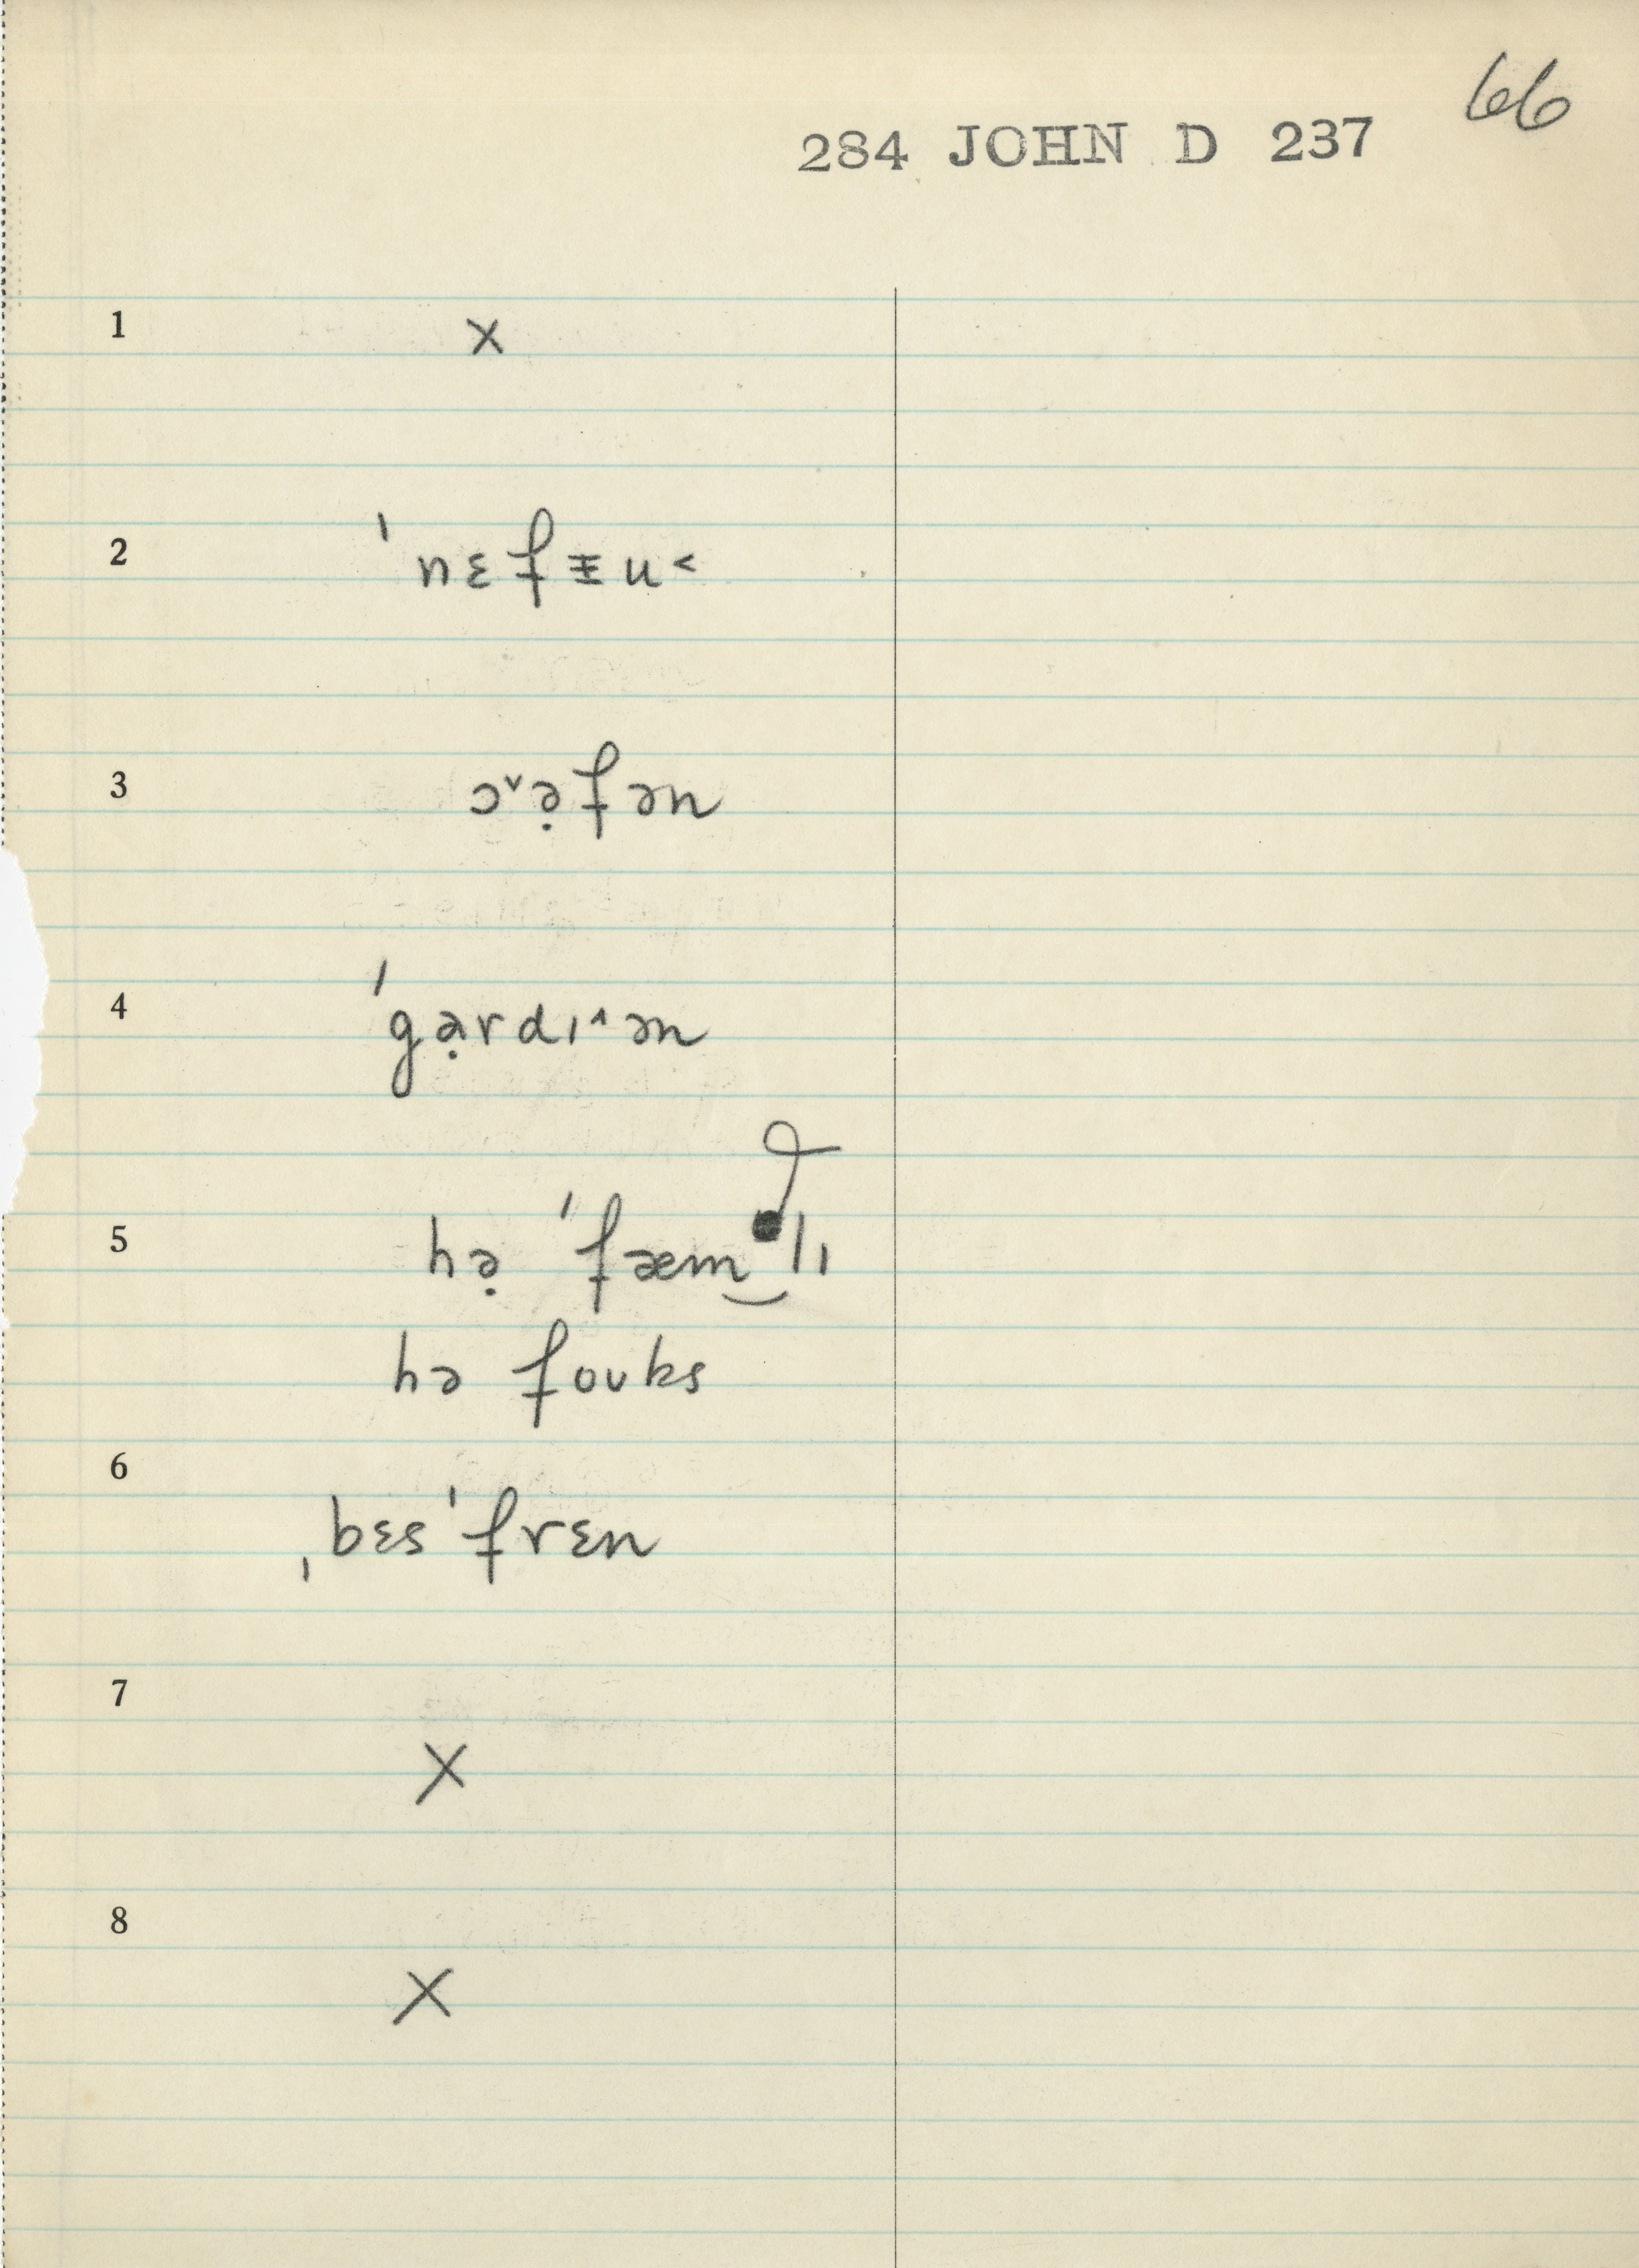 66
284 JOHN D 237
1 x
2 ˈnɛfᵻu˂
3 ɔ˅ə̣fən
4 ˈgạrdɪ˄ən
5 hə̣ ˈfæm‿lɪ
hə foʊks
6 ˌbɛsˈfrɛn
7 X
8 X